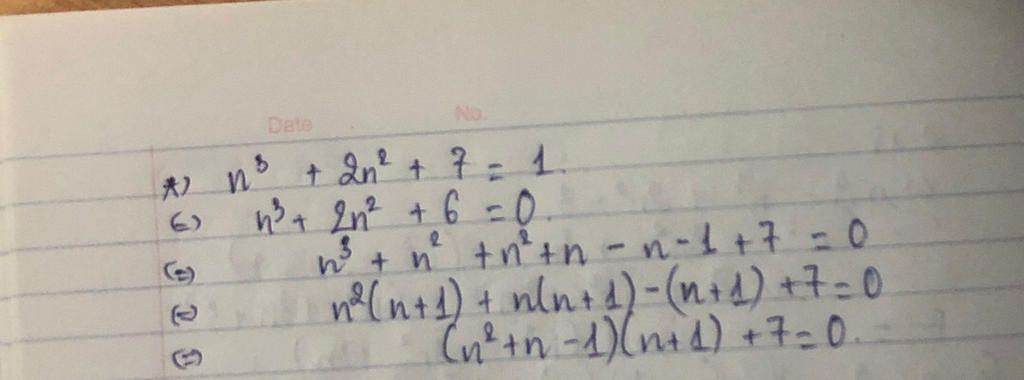 Date No.
*) n³ + 2n² + 7 = 1.
(=) n³ + 2n² + 6 = 0.
(=) n³ + n² + n² + n - n - 1 + 7 = 0
(=) n²(n+1) + n(n+1) - (n+1) + 7 = 0
(=) (n² + n - 1)(n+1) + 7 = 0.